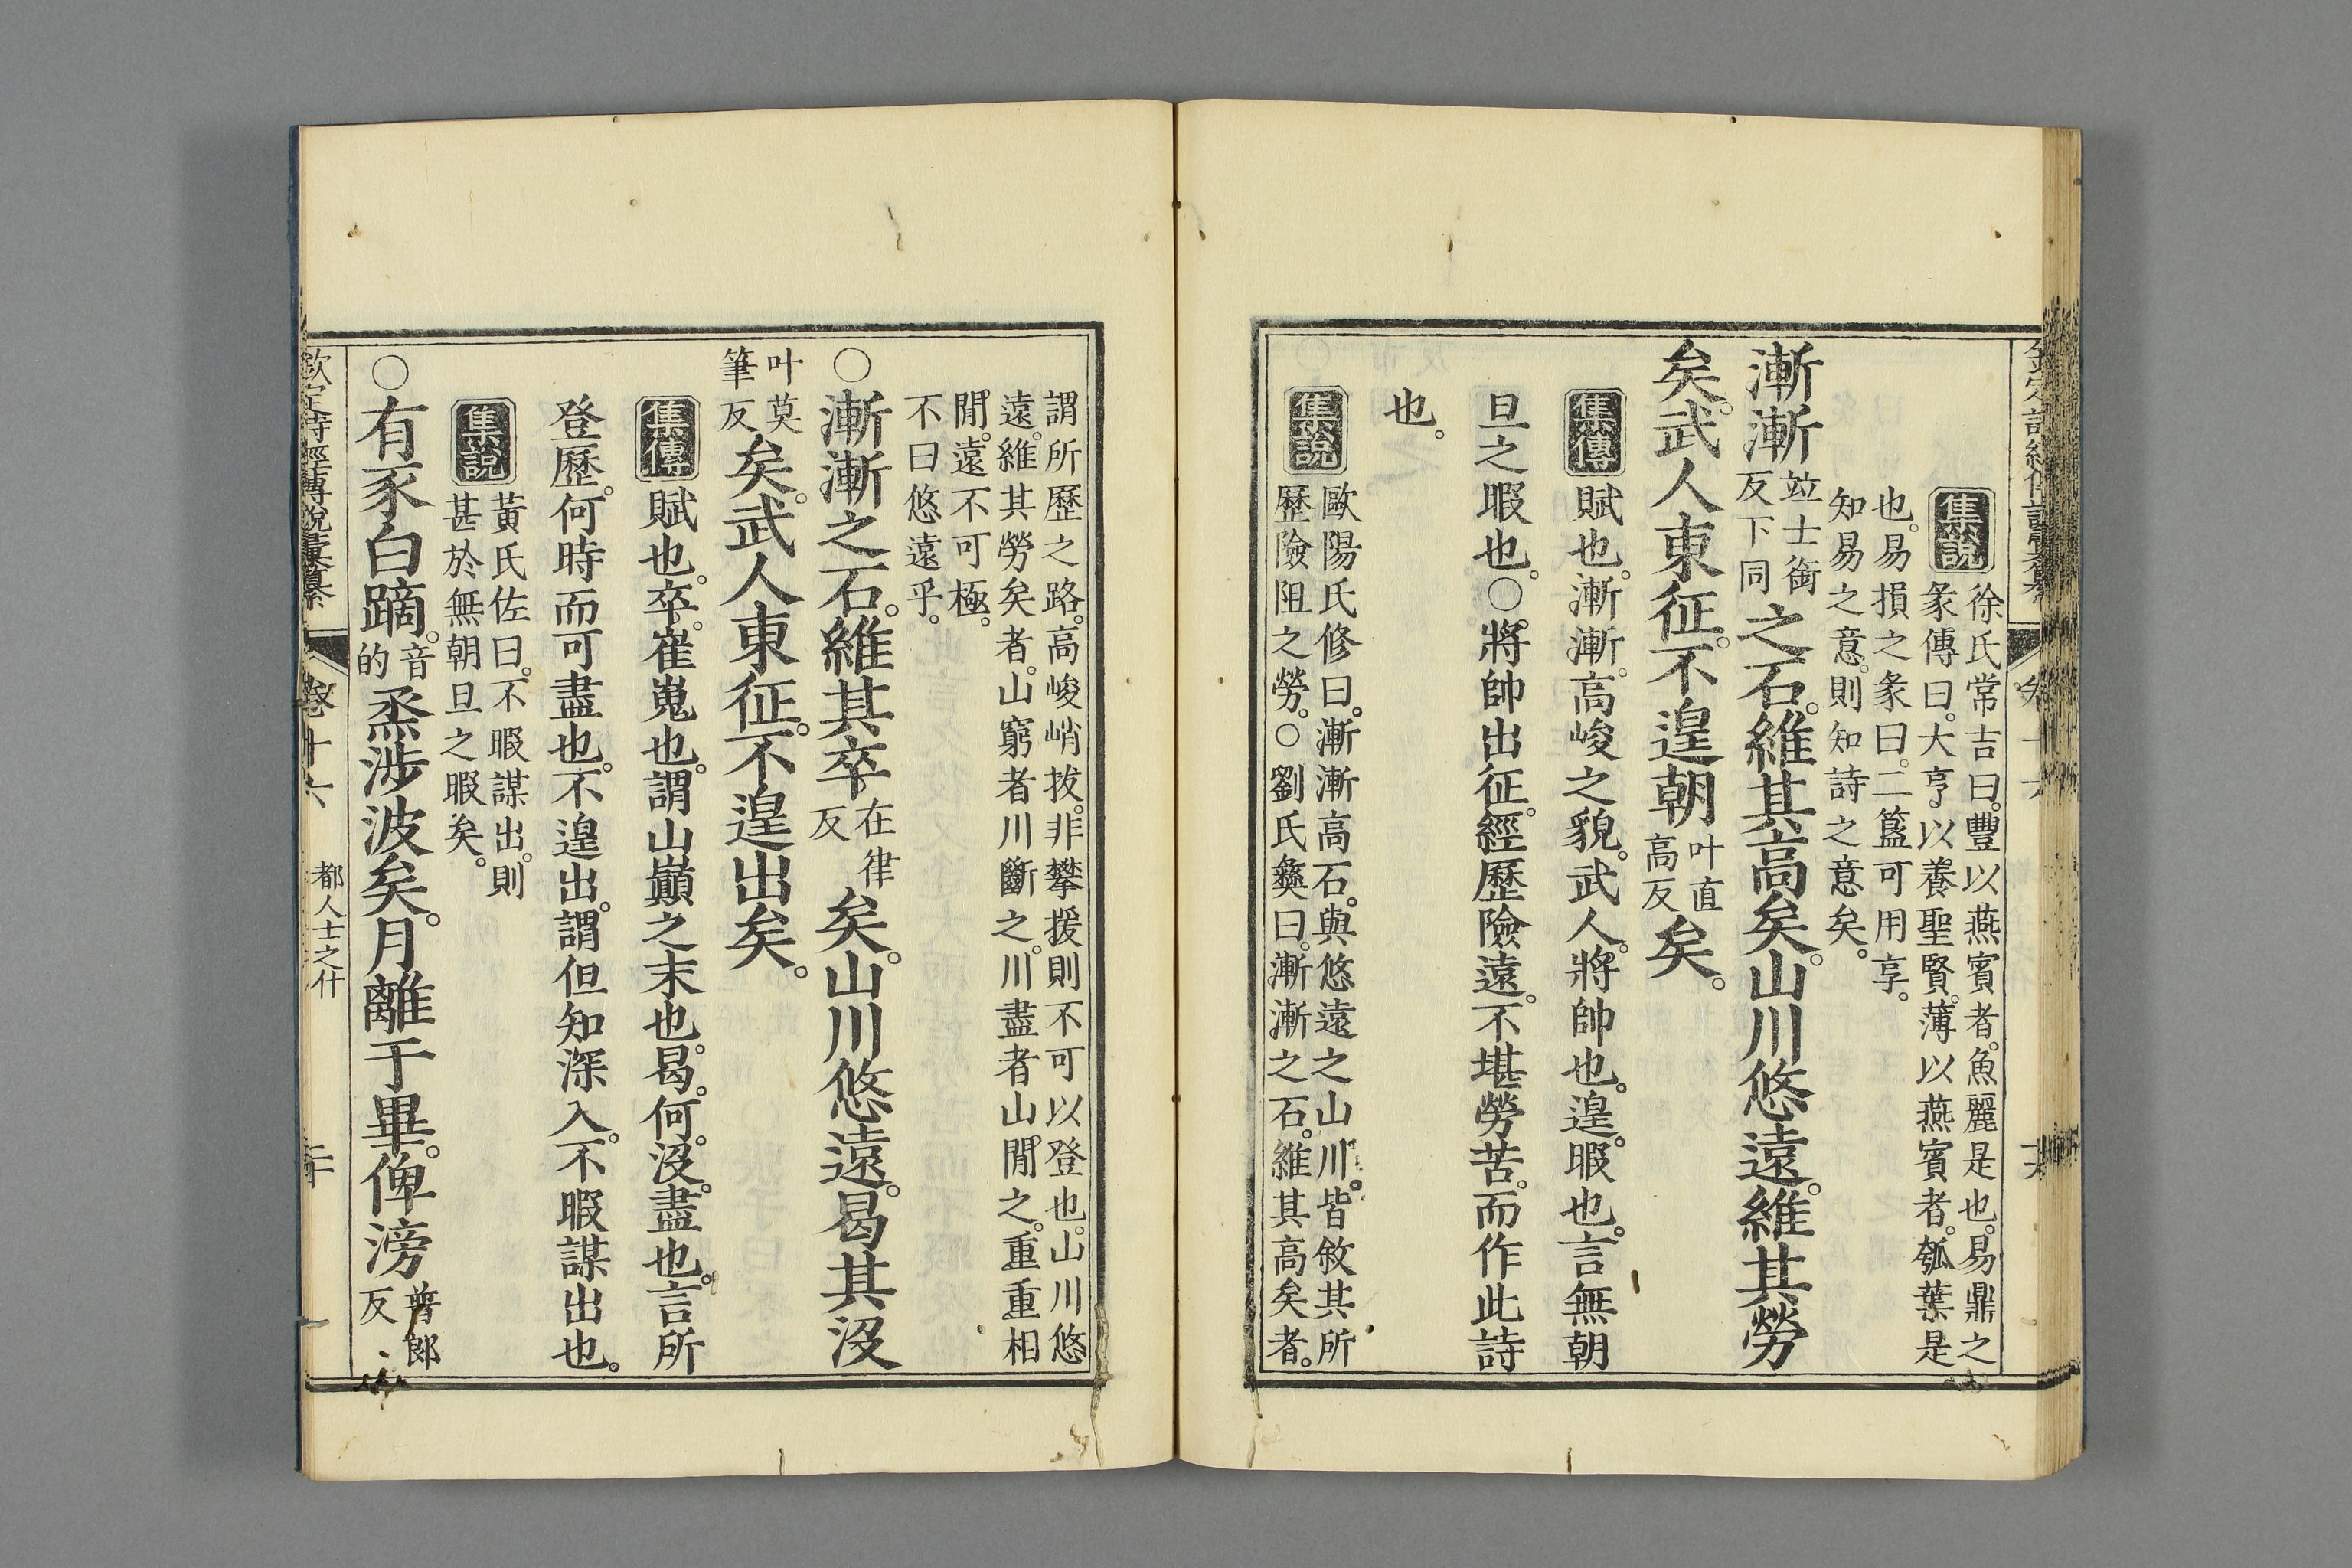 集說
徐氏常吉曰豐以燕賓者魚麗是也易鼎之
彖傳曰大亨以養聖賢薄以燕賓者瓠葉是
也易損之彖曰二簋可用享
知易之意則知詩之意矣
漸漸竝士銜反下同之石維其高矣山川悠遠維其勞
矣武人東征不遑朝叶直高反矣
集傳 賦也漸漸高峻之貌武人將帥也遑暇也言無朝
旦之暇也○將帥出征經歷險遠不堪勞苦而作此詩
也
集說
歐陽氏修曰漸漸高石與悠遠之山川皆敘其所
歷險阻之勞○劉氏彝曰漸漸之石維其高矣者
謂所歷之路高峻峭拔非攀援則不可以登也山川悠
遠維其勞矣者山窮者川斷之川盡者山閒之重重相
閒遠不可極
不曰悠遠乎
○漸漸之石維其卒在律反矣山川悠遠曷其沒
叶莫筆反矣武人東征不遑出矣
集傳 賦也卒崔嵬也謂山巔之末也曷何沒盡也言所
登歷何時而可盡也不遑出謂但知深入不暇謀出也
集說
黃氏佐曰不暇謀出則
甚於無朝旦之暇矣
○有豕白蹢音的烝涉波矣月離于畢俾滂普郎反
欽定詩經傳說彙纂 卷十六 都人士之什 二十